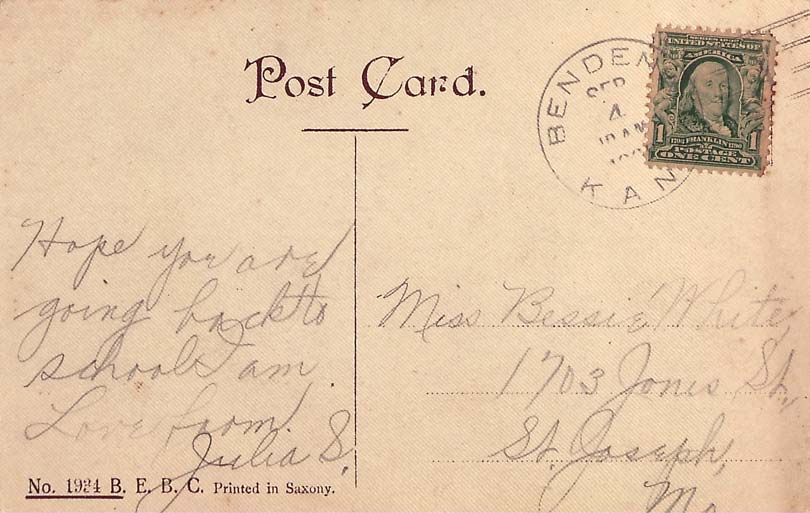 Post Card.
BENDEN
SEP
4
KAN
UNITED STATES OF
AMERICA
1 1
FRANKLIN
POSTAGE
ONE CENT
Hope you are
going back to
school I am
Love from
Julia S.
Miss Bessie White,
1703 Jones St.,
St. Joseph,
Mo
No. 1934 B. E. B. C. Printed in Saxony.